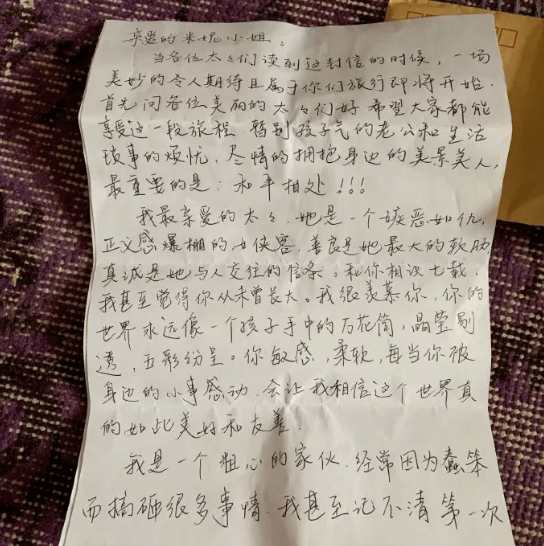 亲爱的米妮小姐：
当各位太太们读到这封信的时候，一场
美妙的令人期待且属于你们旅行即将开始.
首先问各位美丽的太太们好 希望大家都能
享受这一段旅程 暂别孩子气的老公和生活
琐事的烦忧，尽情的拥抱身边的美景美人，
最重要的是：和平相处！！！
我最亲爱的太太，她是一个嫉恶如仇，
正义感爆棚的女侠客，善良是她最大的软肋
真诚是她与人交往的信条，和你相识七载，
我甚至觉得你从未曾长大。我很羡慕你，你的
世界永远像一个孩子手中的万花筒，晶莹剔
透，五彩纷呈。你敏感，柔软，每当你被
身边的小事感动，会让我相信这个世界真
的如此美好和友善.
我是一个粗心的家伙，经常因为蠢笨
而搞砸很多事情，我甚至记不清第一次